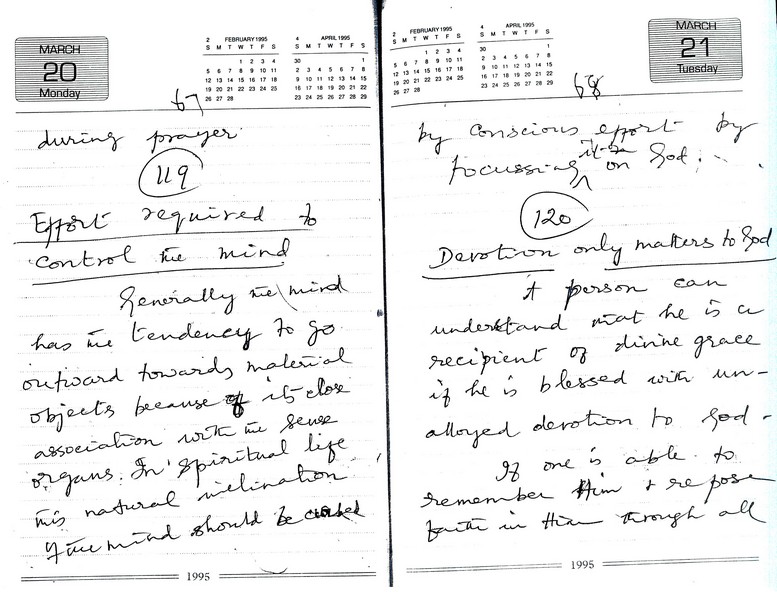 MARCH
20
Monday
2 FEBRUARY 1995
S M T W T F S
1 2 3 4
5 6 7 8 9 10 11
12 13 14 15 16 17 18
19 20 21 22 23 24 25
26 27 28
4 APRIL 1995
S M T W T F S
30 1
2 3 4 5 6 7 8
9 10 11 12 13 14 15
16 17 18 19 20 21 22
23 24 25 26 27 28 29
67
during prayer.
119
Effort required to
control the mind
Generally the mind
has the tendency to go
outward towards material
objects because of its close
association with the sense
organs. In spiritual life
this natural inclination
of the mind should be curbed
1995
2 FEBRUARY 1995
S M T W T F S
1 2 3 4
5 6 7 8 9 10 11
12 13 14 15 16 17 18
19 20 21 22 23 24 25
26 27 28
4 APRIL 1995
S M T W T F S
30 1
2 3 4 5 6 7 8
9 10 11 12 13 14 15
16 17 18 19 20 21 22
23 24 25 26 27 28 29
MARCH
21
Tuesday
68
by conscious effort by
focussing it on God.
120
Devotion only matters to God
A person can
understand that he is a
recipient of divine grace
if he is blessed with un-
alloyed devotion to God.
If one is able to
remember Him & repose
faith in Him through all
1995